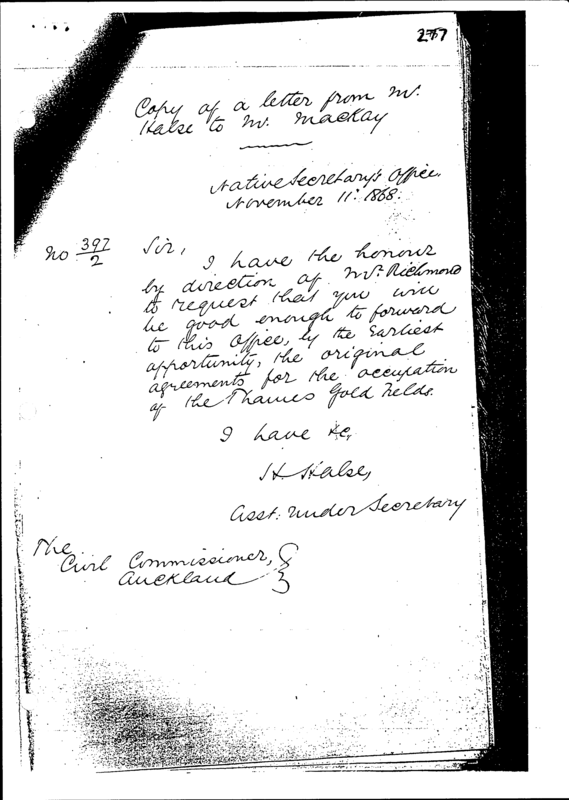 277
Copy of a letter from Mr.
Halse to Mr. Mackay
Native Secretary's Office.
November 11: 1868:
No 397/2
Sir,
I have the honour
by direction of Mr. Richmond
to request that you will
be good enough to forward
to this Office, by the Earliest
opportunity, the original
agreements for the occupation
of the Thames Gold Fields.
I have &c,
H. Halse,
Asst: Under Secretary
The
Civil Commissioner,
Auckland